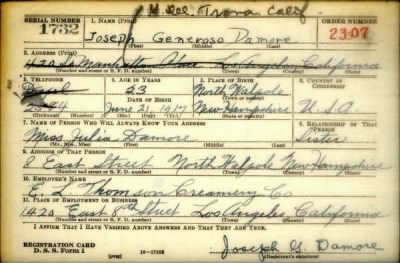 SERIAL NUMBER 1. NAME (Print) ORDER NUMBER
1732 Joseph Generoso Damore 2307
(First) (Middle) (Last)
2. ADDRESS (Print)
420 So Manhattan Place Los Angeles California
(Number and street or R. F. D. number) (Town) (County) (State)
3. TELEPHONE 4. AGE IN YEARS 5. PLACE OF BIRTH 6. COUNTRY OF CITIZENSHIP
23 North Walpole
DATE OF BIRTH
June 21, 1917 New Hampshire U.S.A.
(Exchange) (Number) (Mo.) (Day) (Yr.) (State or country)
7. NAME OF PERSON WHO WILL ALWAYS KNOW YOUR ADDRESS 8. RELATIONSHIP OF THAT PERSON
Miss Julia Damore Sister
(Mr., Mrs., Miss) (First) (Middle) (Last)
9. ADDRESS OF THAT PERSON
East Street North Walpole New Hampshire
(Number and street or R. F. D. number) (Town) (County) (State)
10. EMPLOYER'S NAME
E. L. Thomson Creamery Co
11. PLACE OF EMPLOYMENT OR BUSINESS
1420 East Street Los Angeles California
(Number and street or R. F. D. number) (Town) (County) (State)
I AFFIRM THAT I HAVE VERIFIED ABOVE ANSWERS AND THAT THEY ARE TRUE.
REGISTRATION CARD
D. S. S. Form 1 (over) Joseph G. Damore
(Registrant's signature)